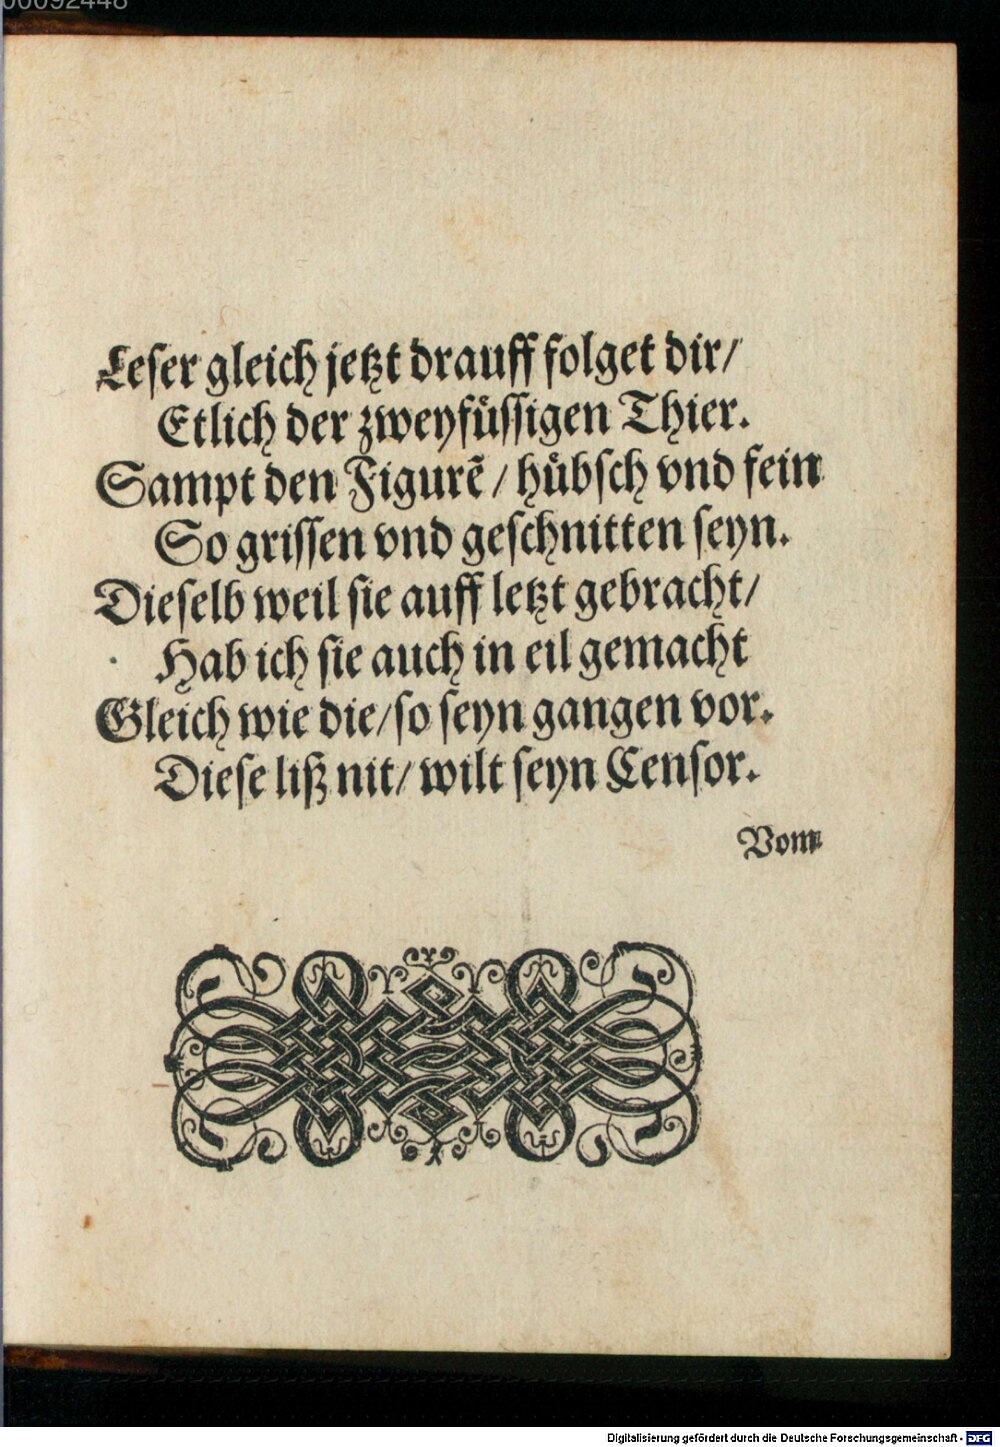 00092448
Leser gleich jetzt drauff folget dir/
Etlich der zweyfuͤssigen Thier.
Sampt den Figurẽ / huͤbsch vnd fein
So grissen vnd geschnitten seyn.
Dieselb weil sie auff letzt gebracht/
Hab ich sie auch in eil gemacht
Gleich wie die/ so seyn gangen vor.
Diese liß nit/ wilt seyn Censor.
Vom
Digitalisierung gefördert durch die Deutsche Forschungsgemeinschaft - DFG